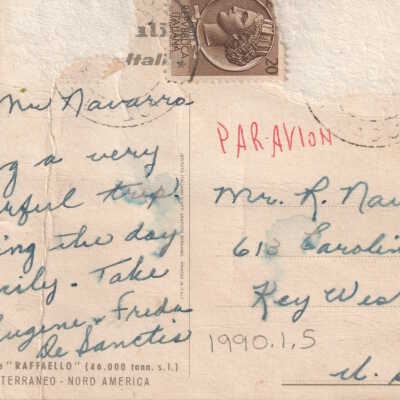 ali
Itali
20
REPUBBLICA
ITALIANA
Mr Navarro
g a very
rful trip.
ing the day
mily. Take
Eugene & Freda
De Sanctis
e "RAFFAELLO" (46.000 tonn. s.l.)
TERRANEO - NORD AMERICA
PAR AVION
Mr. R. Nav
613 Carolin
Key Wes
U. S
1990.1.5